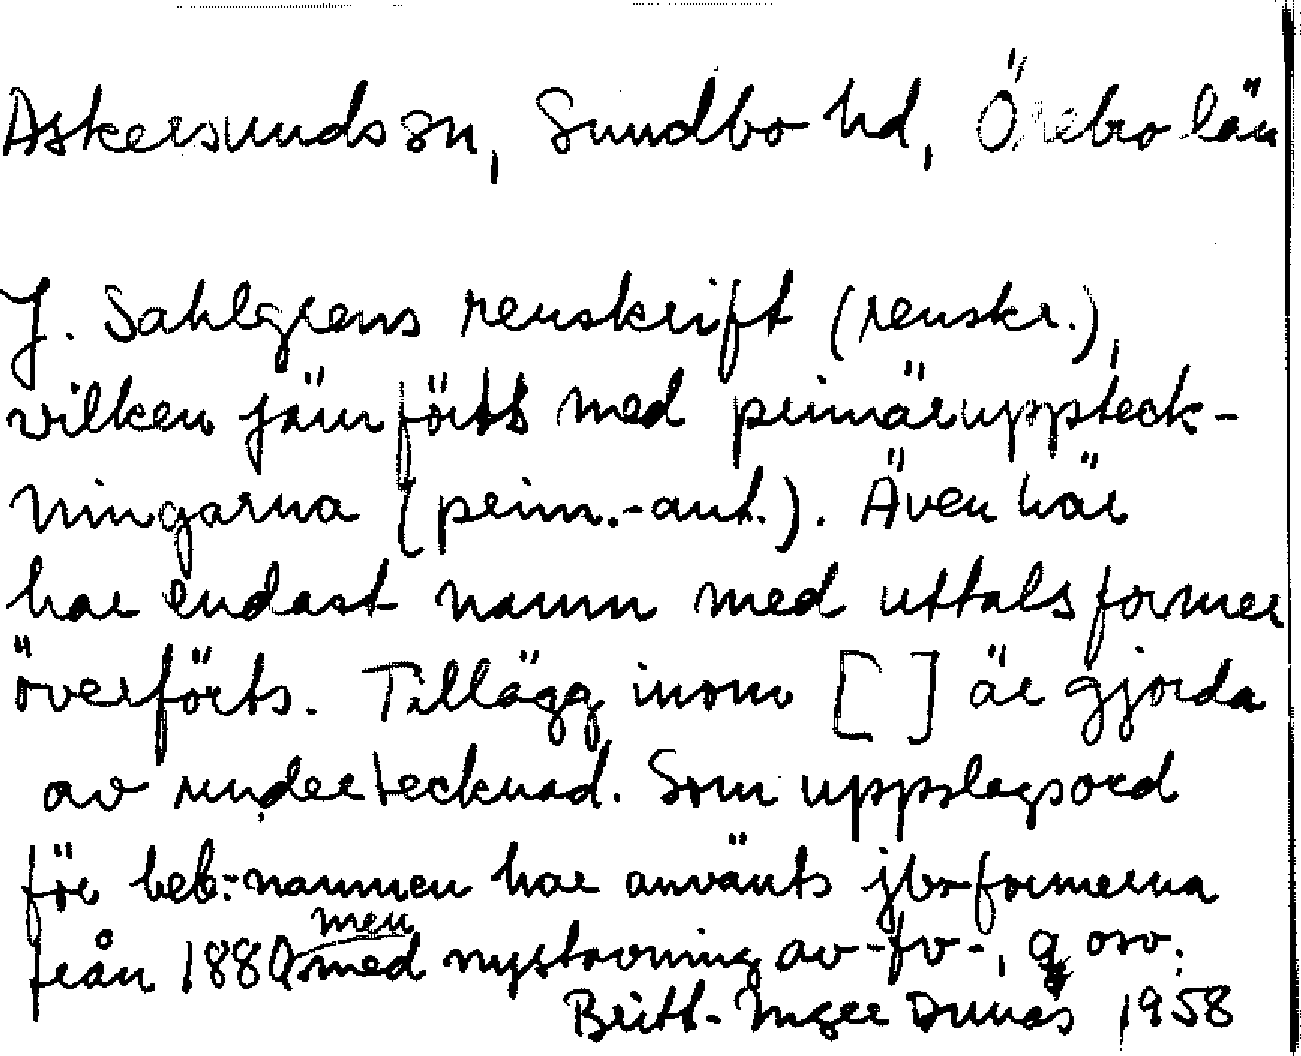 Askersunds sn, Sundbo hd, Örebro län
J. Sahlgrens renskrift (renskr.),
vilken jämförts med primäruppteck-
ningarna (prim.-ant.). Även här
har endast namn med uttalsformer
överförts. Tillägg inom [ ] är gjorda
av undertecknad. Som uppslagsord
för beb.-namnen har använts jbr-formerna
men
från 1880 med nystavning av -fv-, q osv.
Britt-Inger Dunås 1958